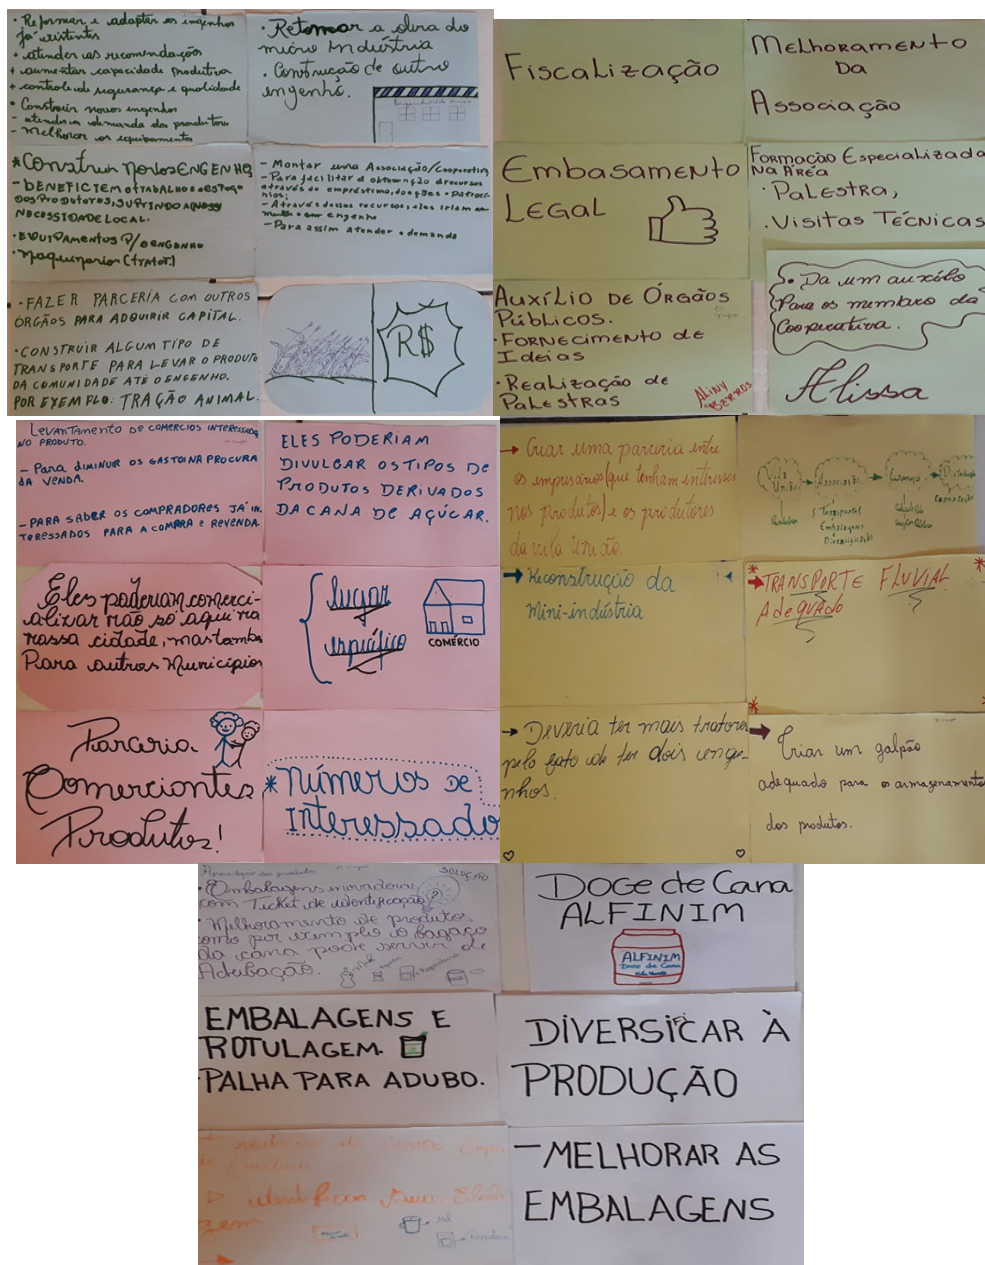 • Reformar e adaptar os engenhos
já existentes
+ atender as recomendações
+ aumentar capacidade produtiva
+ controle de segurança e qualidade
• Construir novos engenhos
- atender a demanda da produtora
- Melhorar os equipamentos
• Retomar a obra da
micro indústria
• Construção de outro
engenho.
*Construir NOVOS ENGENHO
- BENEFICIEM O TRABALHO E ESFORÇO
DOS PRODUTORES, SUPRINDO A
NECESSIDADE LOCAL.
• EQUIPAMENTOS P/ O ENGENHO
• Maquinarios (trator.)
- Montar uma Associação/Cooperativa
- Para facilitar a obtenção de recursos
através de empréstimo, doações e patroci-
nios;
- Através desses recursos, eles iriam
o engenho
- Para assim atender a demanda
• FAZER PARCERIA COM OUTROS
ÓRGÃOS PARA ADQUIRIR CAPITAL.
• CONSTRUIR ALGUM TIPO DE
TRANSPORTE PARA LEVAR O PRODUTO
DA COMUNIDADE ATÉ O ENGENHO.
POR EXEMPLO: TRAÇÃO ANIMAL.
R$
Fiscalização
Melhoramento
Da
Associação
Embasamento
Legal
Formação Especializada
na Área
• Palestra,
• Visitas Técnicas
Auxílio de Órgãos
Públicos.
• Fornecimento de
Ideias
• Realização de
Palestras
Aliny
Berros
• Da um auxílo
Para os membro da
Cooperativa.
Alissa
Levantamento de comercios interessados
no produto.
- Para diminuir os gasto na procura
da venda.
- PARA SABER OS COMPRADORES JÁ IN-
TERESSADOS PARA A COMPRA E REVENDA.
ELES PODERIAM
DIVULGAR OS TIPOS DE
PRODUTOS DERIVADOS
DA CANA DE AÇÚCAR.
Eles poderiam comerci-
alizar não só aqui na
nossa cidade, mas também
Para outros Municípios
lugar
específico
COMÉRCIO
Parceria
Comerciantes
Produtos!
* Números de
Interessado
→ Criar uma parceria entre
os empresários (que tenham interesses
nos produtos) e os produtores
da vila União
Vila
União
Associação
Transportes
Embalagens
Diversificação
→ Reconstrução da
Mini-indústria
→ TRANSPORTE FLUVIAL
Adequado
→ Deveria ter mais tratores
pelo fato de ter dois enge-
nhos.
→ Criar um galpão
adequado para o armazenamento
dos produtos.
SOLUÇÃO
• Embalagens inovadoras
com Ticket de identificação
• Melhoramento de produtos
como por exemplo o bagaço
da cana pode servir de
Adubação.
Doce de Cana
ALFINIM
ALFINIM
Doce de Cana
EMBALAGENS E
ROTULAGEM.
PALHA PARA ADUBO.
DIVERSIFICAR À
PRODUÇÃO
identificar suas
gem
→ mel
- MELHORAR AS
EMBALAGENS